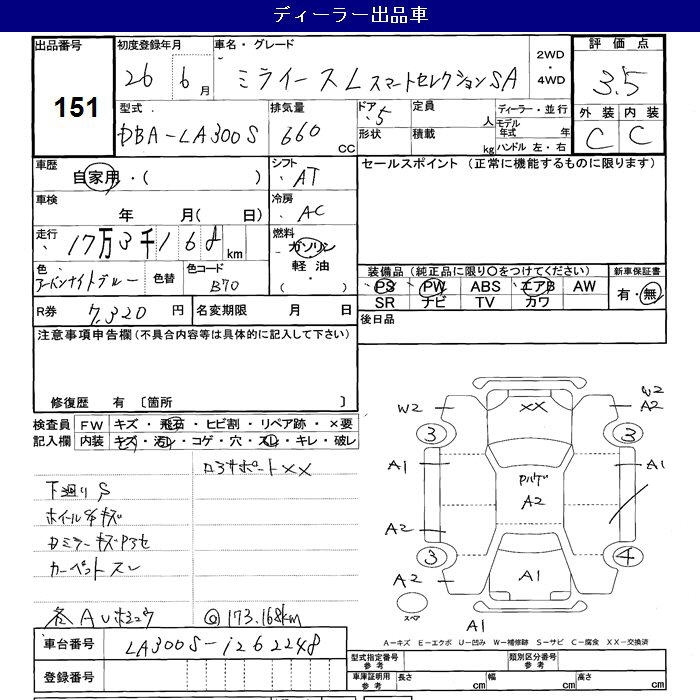 ディーラー出品車
出品番号 151
初度登録年月 26 6月
車名・グレード ミライース L スマートセレクションSA
2WD・4WD
評価点 3.5
型式 DBA-LA300S
排気量 660 CC
ドア 5
形状
定員 人
積載 kg
ディーラー・並行
モデル年式 年
ハンドル 左・右
外装 C
内装 C
車歴 自家用・( )
シフト AT
車検 年 月( 日)
冷房 AC
走行 17万3千168km
燃料 ガソリン・軽油・( )
色 アーバンナイトブルー
色替
色コード B70
R券 7,320円
名変期限 月 日
セールスポイント(正常に機能するものに限ります)
装備品(純正品に限り○をつけてください)
PS PW ABS エアB AW
SR ナビ TV カワ
新車保証書 有・無
後日品
注意事項申告欄(不具合内容等は具体的に記入して下さい)
修復歴 有 〔箇所 〕
検査員記入欄
FW キズ・飛石・ヒビ割・リペア跡・×要
内装 キズ・汚レ・コゲ・穴・スレ・キレ・破レ
コアサポートXX
下廻りS
ホイール4キズ
カーペットスレ
各AUホコウ
◎173,168km
W2 XX W2 A2
3 3
A1 A1
A2
A2
3 4
A2 A1
スペア
A1
A-キズ E-エクボ U-凹み W-補修跡 S-サビ C-腐食 XX-交換済
車台番号 LA300S-1262248
登録番号
型式指定番号 参考
類別区分番号 参考
車庫証明用 参考 長さ cm 幅 cm 高さ cm